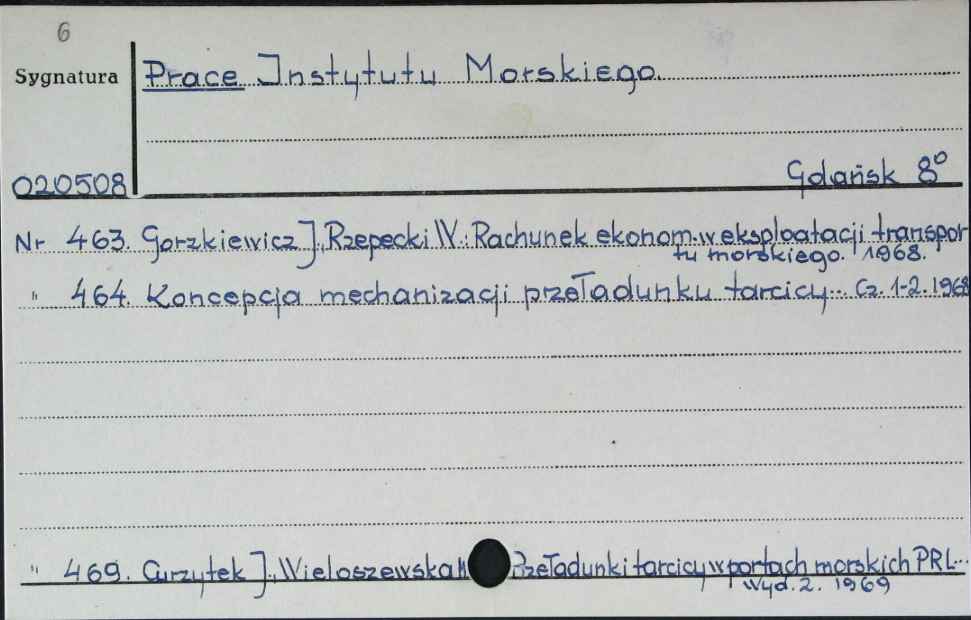 6
Sygnatura
Prace Instytutu Morskiego.
020508
Gdańsk 8°
Nr 463. Gorzkiewicz J., Rzepecki W.: Rachunek ekonom. w eksploatacji transpor
tu morskiego. 1968.
" 464. Koncepcja mechanizacji przeładunku tarcicy... Cz. 1-2. 1968
" 469. Curzytek J., Wieloszewska Przeładunki tarcicy w portach morskich PRL...
Wyd. 2. 1969